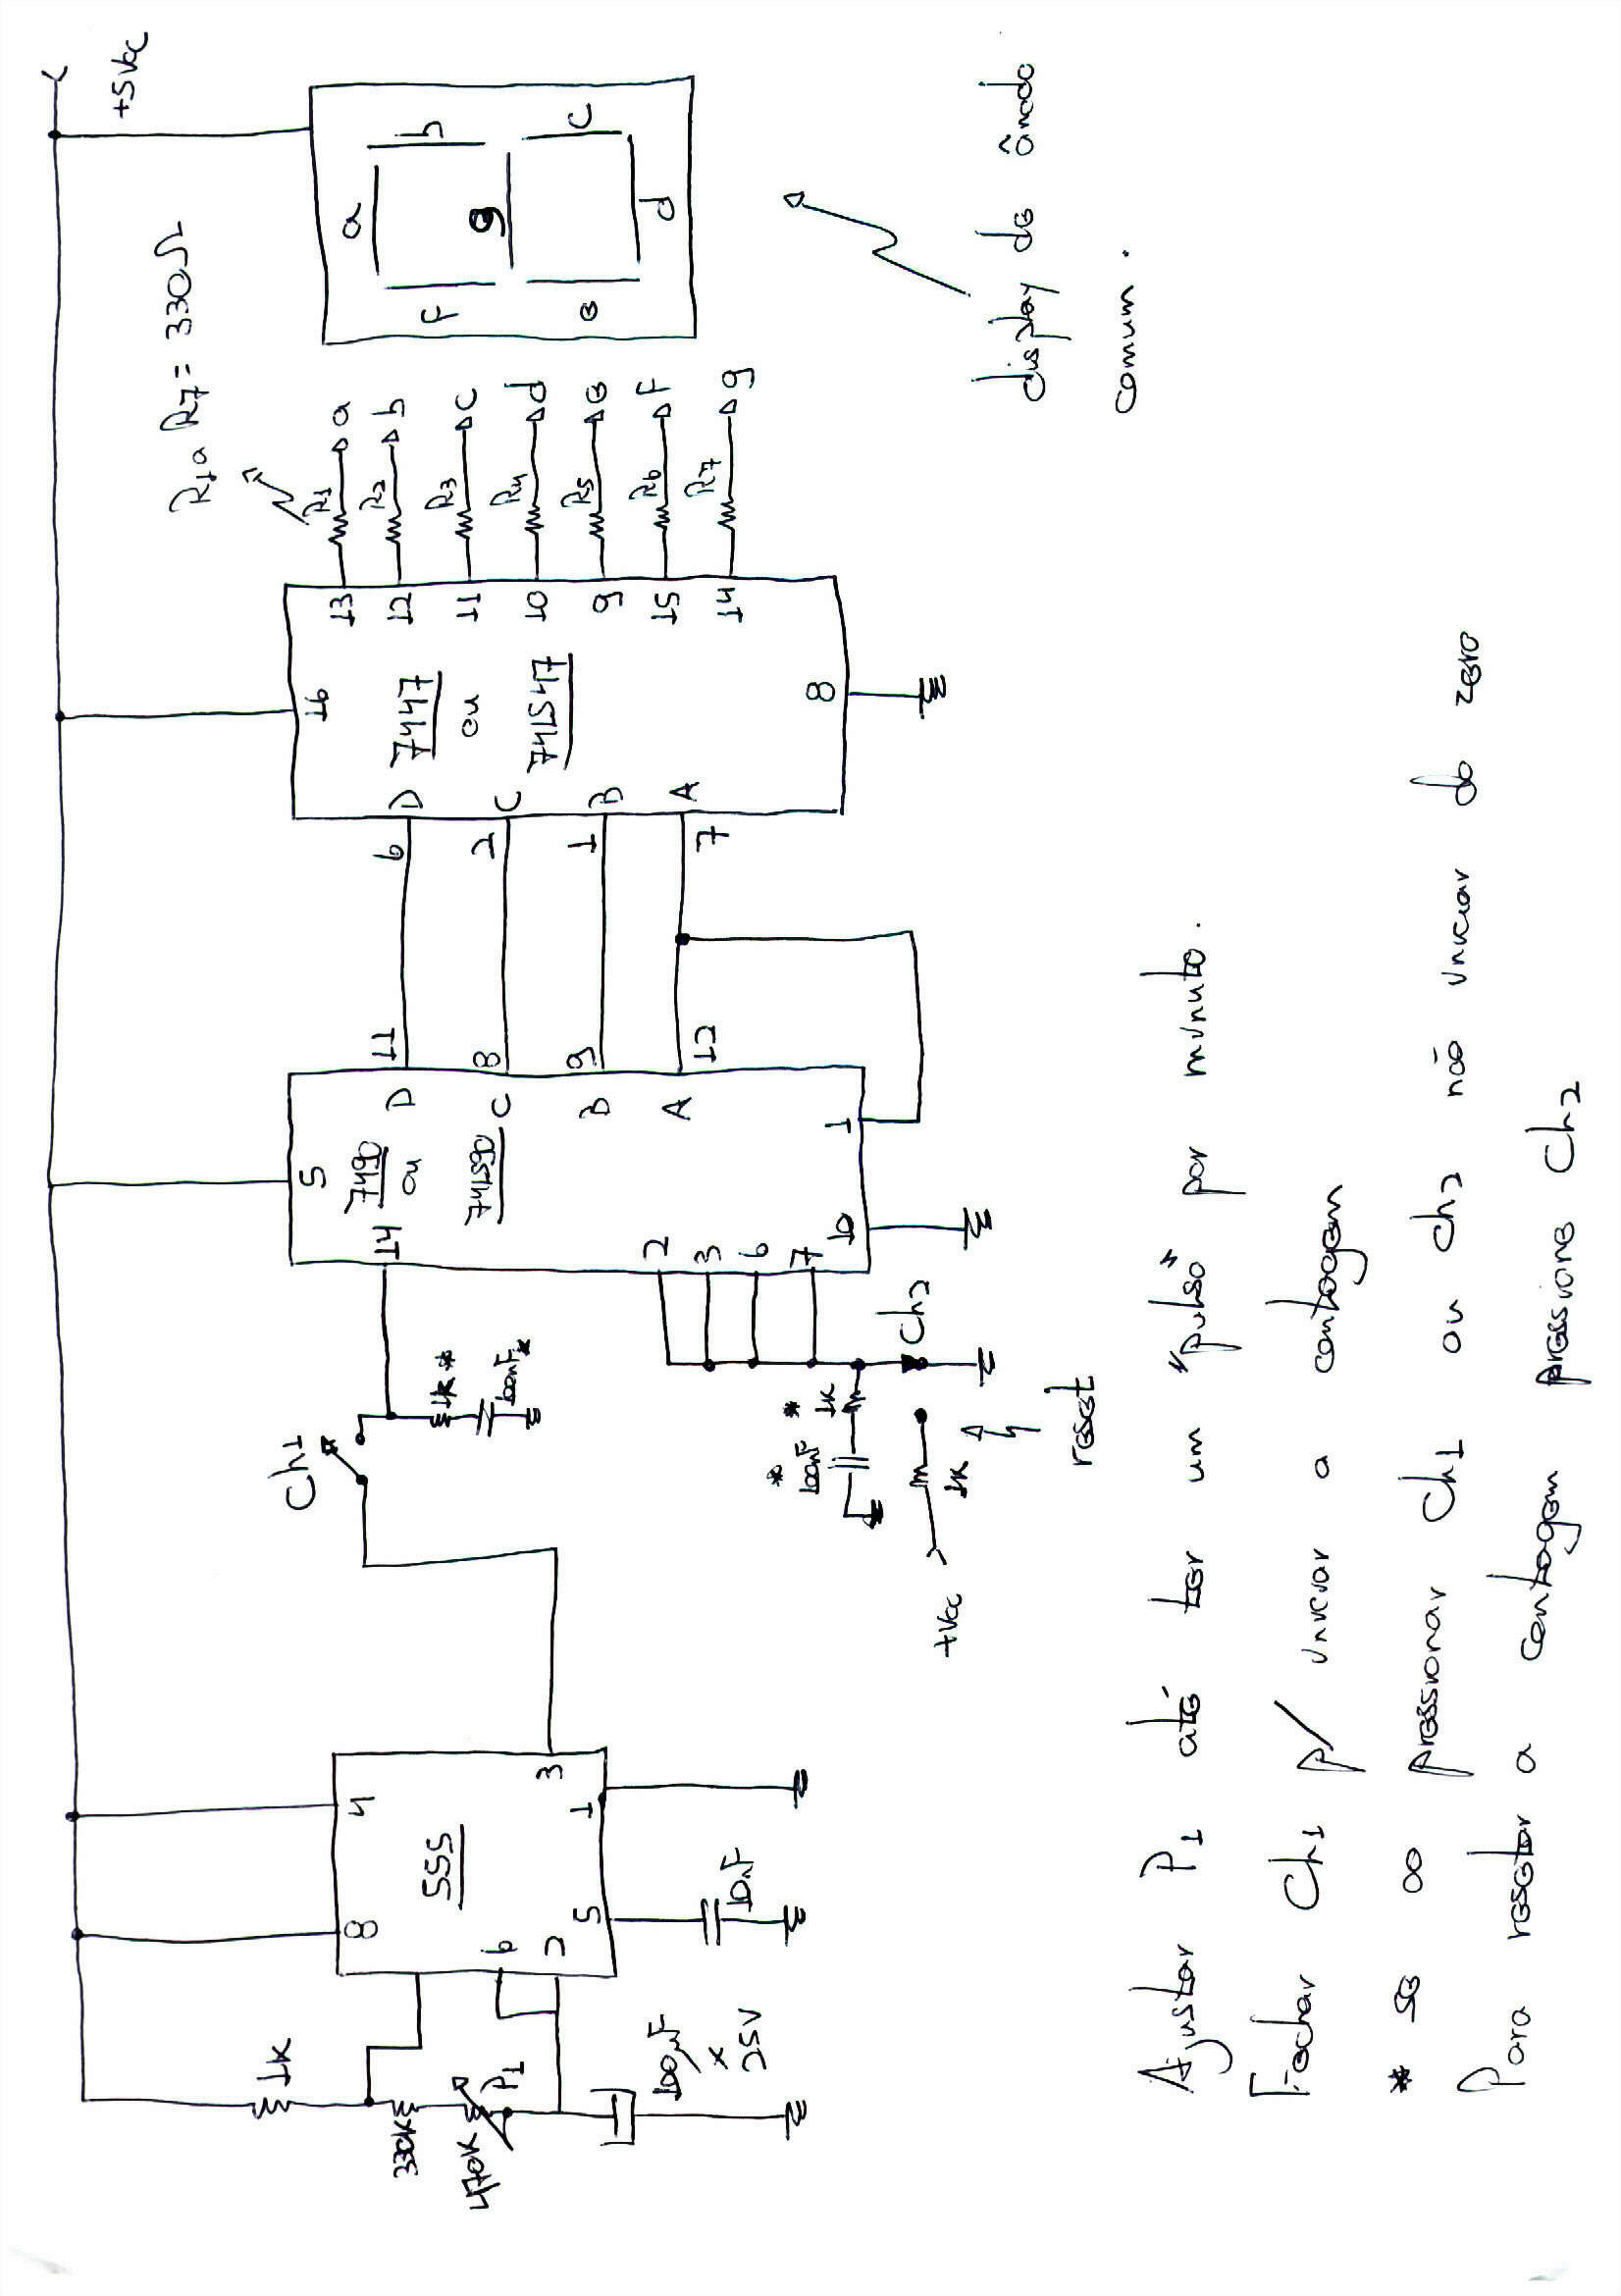 +5Vcc
R1 a R7 = 330Ω
a
b
c
d
e
f
g
R1
R2
R3
R4
R5
R6
R7
a
b
c
d
e
f
g
display de ânodo
comum.
16
7447
ou
74LS47
13
12
11
10
9
15
14
8
D
C
B
A
6
2
1
7
11
8
9
12
5
7490
ou
74LS90
D
C
B
A
14
2
3
6
7
10
1
Ch1
1K*
100nF*
Ch2
* 1K
* 100nF
1K
+Vcc
reset
8
4
555
6
2
5
1
3
10nF
1K
330K
470K
P1
100µF
x
25V
Ajustar P1 até ter um "pulso" por minuto.
Fechar Ch1 p/ iniciar a contagem
* se ao pressionar Ch1 ou Ch2 não iniciar do zero
Para resetar a contagem pressione Ch2